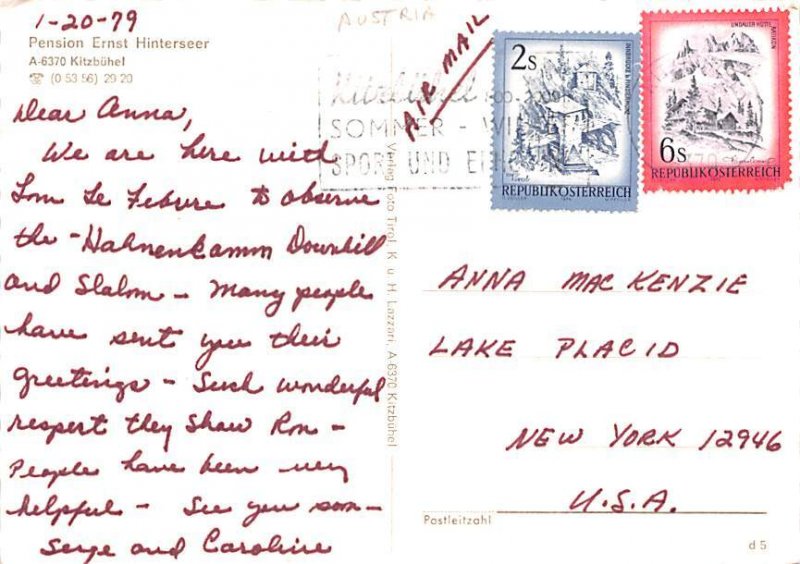 1-20-79
AUSTRIA
Pension Ernst Hinterseer
A-6370 Kitzbühel
☎ (0 53 56) 29 20
AIR MAIL
Dear Anna,
We are here with
Tom Le Febvre to observe
the - Hahnenkamm Downhill
and Slalom - Many people
have sent you their
greetings - Such wonderful
respect they show Ron -
People have been very
helpful - See you soon -
Serge and Caroline
Verlag Foto Tirol K. u. H. Lazzari, A-6370 Kitzbühel
Kitzbühel
SOMMER - WI
SPORT UND
2s
REPUBLIK ÖSTERREICH
LINDAUER HÜTTE
6s
REPUBLIK ÖSTERREICH
ANNA MAC KENZIE
LAKE PLACID
NEW YORK 12946
U.S.A.
Postleitzahl
d 5